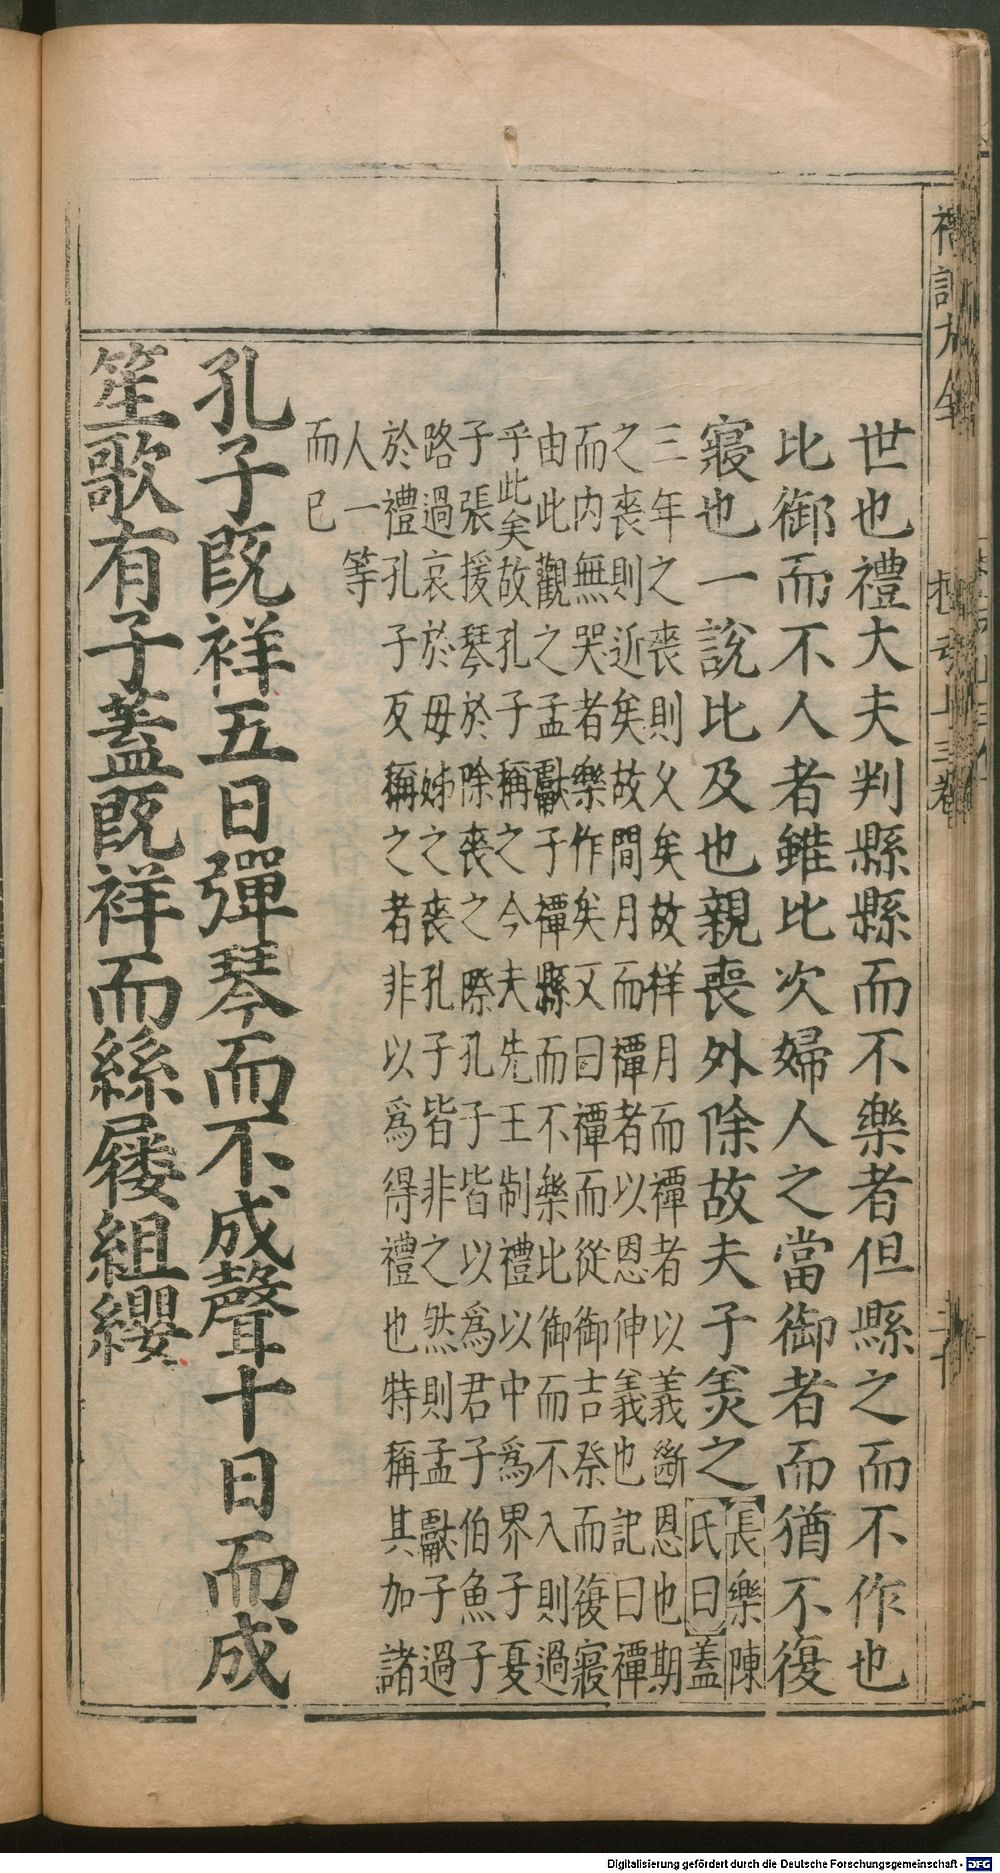 世也禮大夫判縣縣而不樂者但縣之而不作也
比御而不人者雖比次婦人之當御者而猶不復
寢也一說比及也親喪外除故夫子美之長樂陳
氏曰蓋
三年之喪則乆矣故祥月而禫者以義斷恩也期
之喪則近矣故間月而禫者以恩伸義也記曰禫
而内無哭者樂作矣又曰禫而從御吉祭而復寢
由此觀之孟獻子禫縣而不樂比御而不入則過
乎此矣故孔子稱之今夫先王制禮以中為界子夏
子張援琴於除喪之際孔子皆以為君子伯魚子
路過哀於母姊之喪孔子皆非之然則孟獻子過
於禮孔子反稱之者非以為得禮也特稱其加諸
人一等
而已
孔子既祥五日彈琴而不成聲十日而成
笙歌有子蓋既祥而絲屨組纓
禮記大全
二十
Digitalisierung gefördert durch die Deutsche Forschungsgemeinschaft - DFG